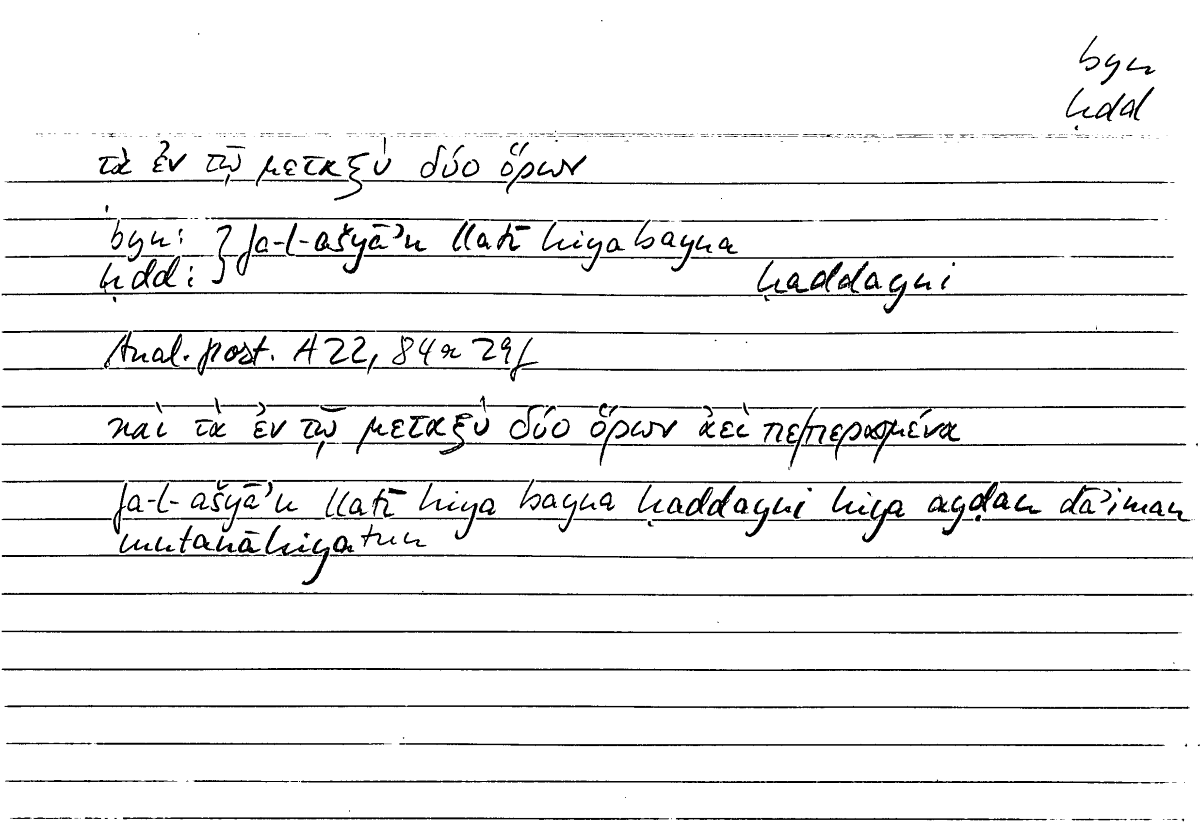 byn
ḥdd
τὰ ἐν τῷ μεταξὺ δύο ὅρων
byn: } fa-l-ašyāʾu llatī hiya bayna
ḥdd: ḥaddayni
Anal. post. A 22, 84a 29f
καὶ τὰ ἐν τῷ μεταξὺ δύο ὅρων ἀεὶ πεπερασμένα
fa-l-ašyāʾu llatī hiya bayna ḥaddayni hiya ayḍan dāʾiman
mutanāhiyatun